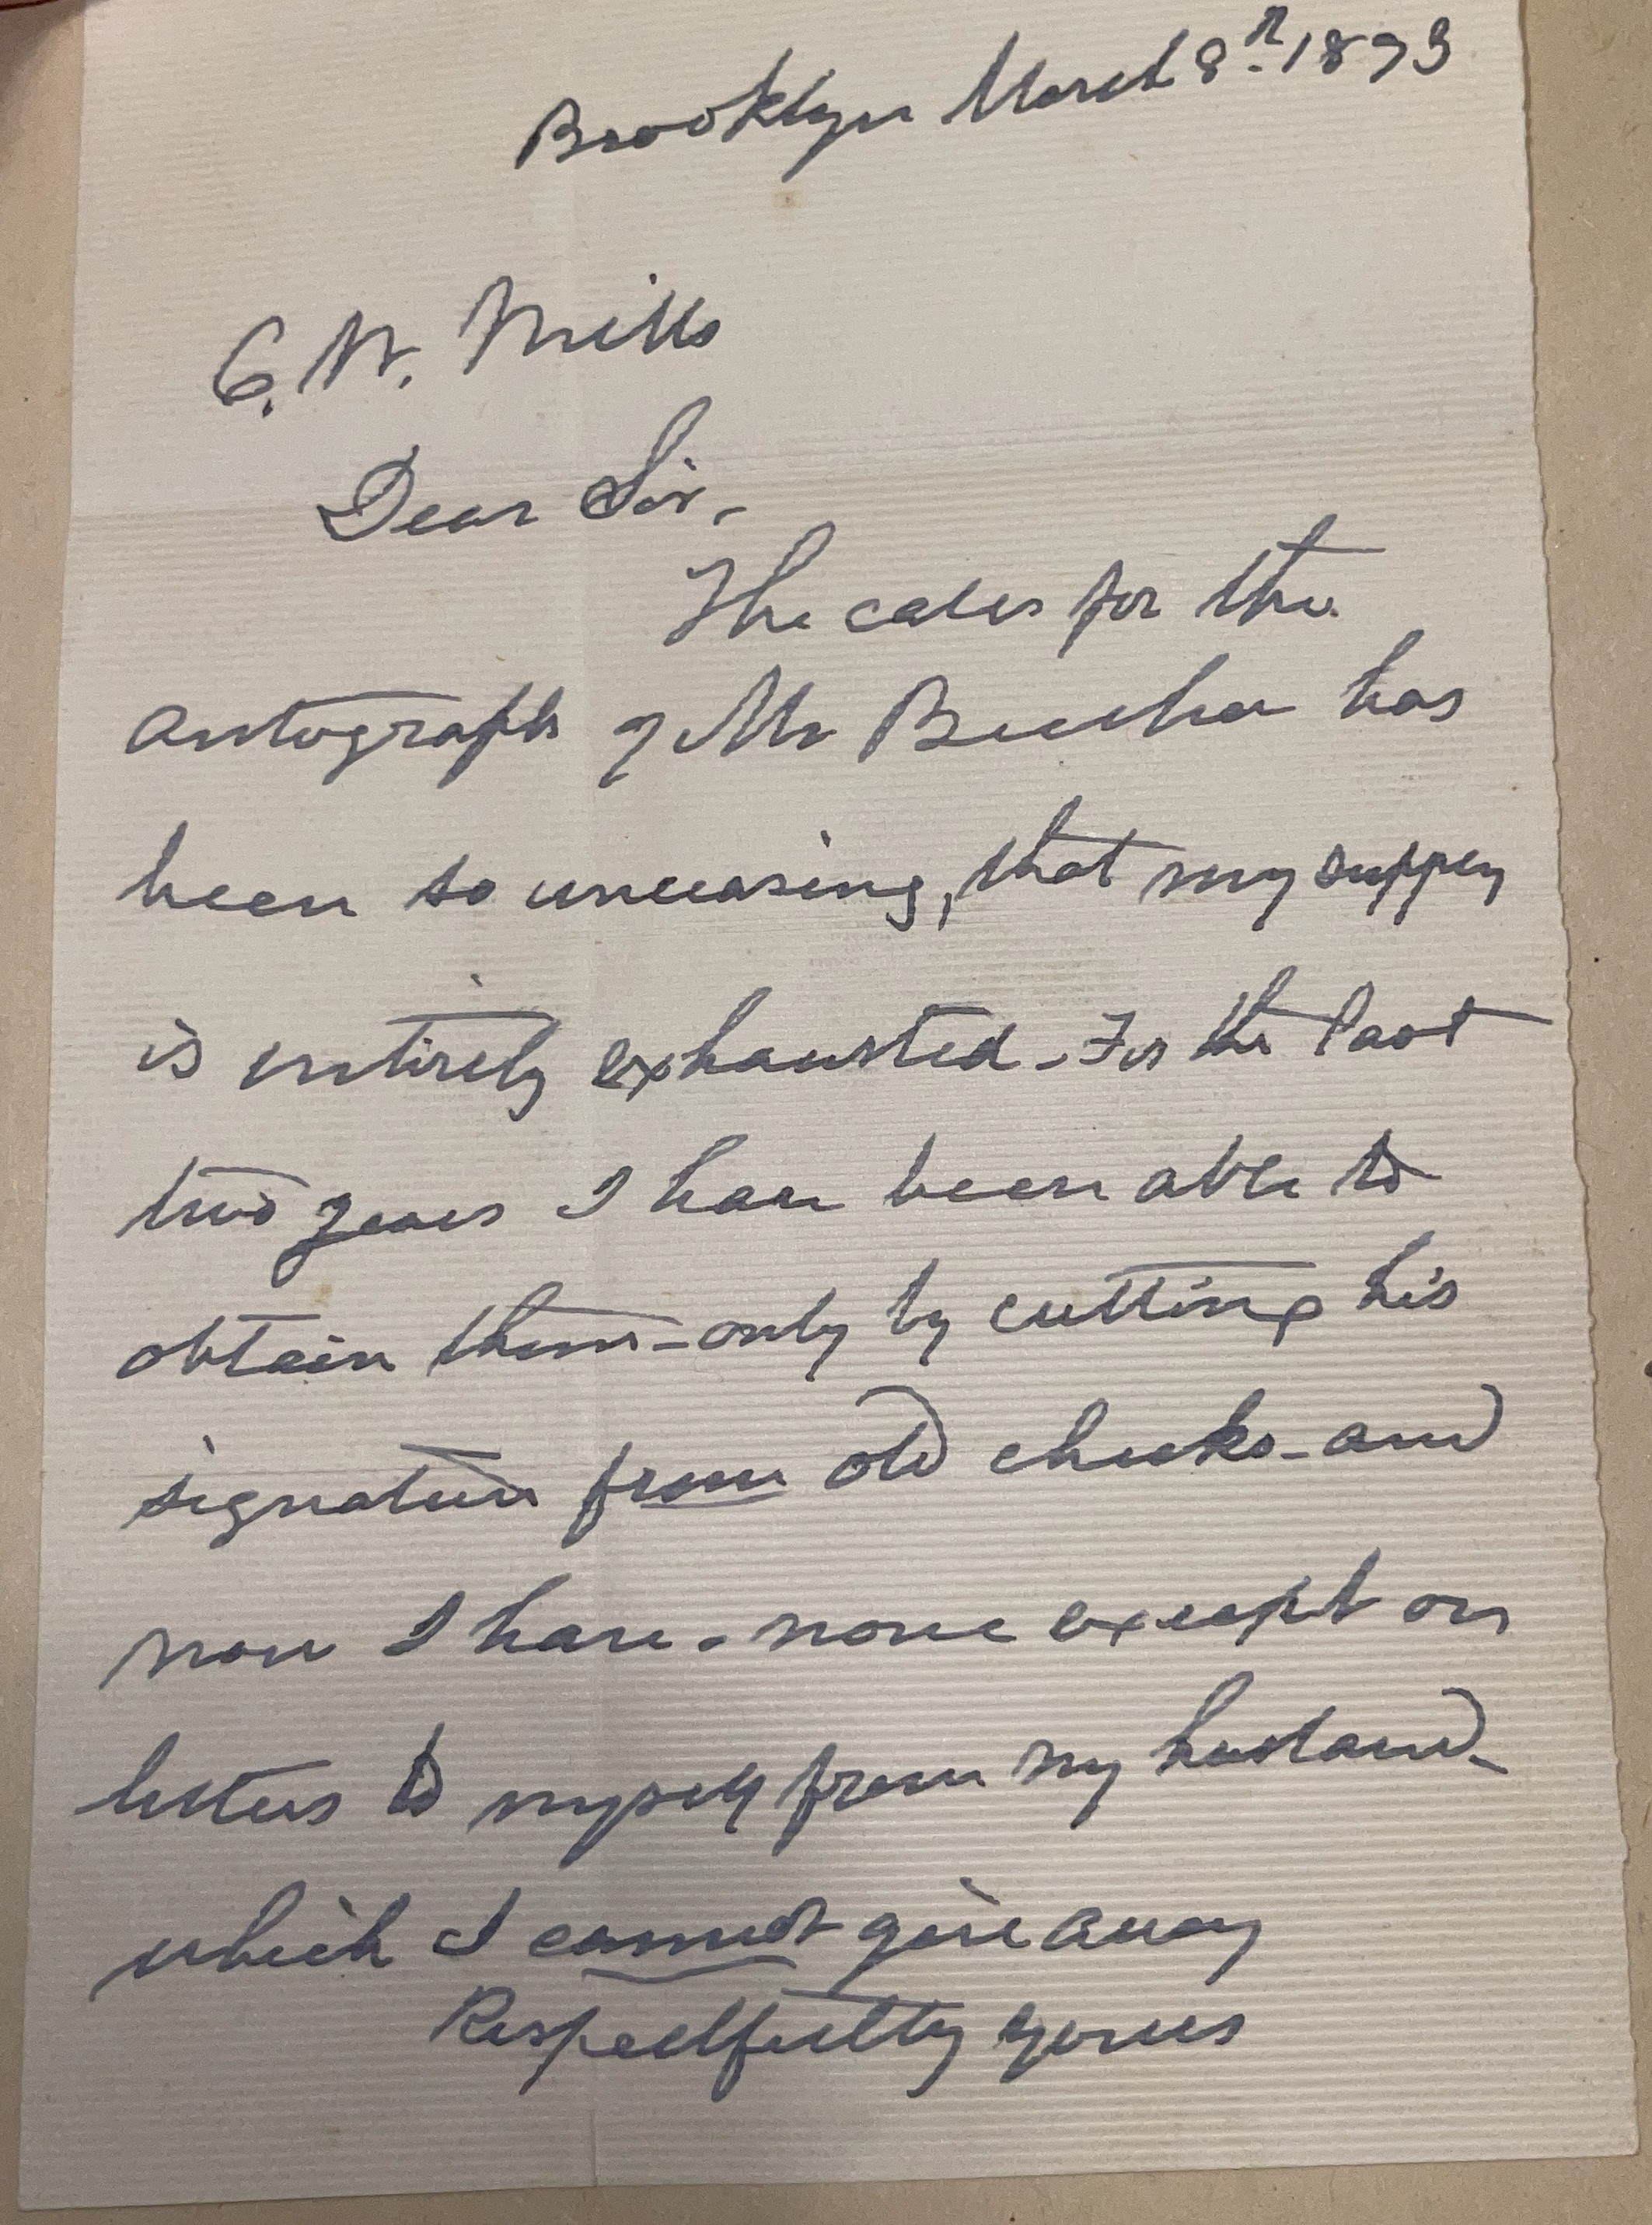 Brooklyn March 8th. 1893
C. W. Mills
Dear Sir,-
The calls for the
autograph of Mr Beecher has
been so unceasing, that my supply
is entirely exhausted - For the last
two years I have been able to
obtain them - only by cutting his
signature from old checks - and
now I have - none except on
letters to myself from my husband -
which I cannot give away
Respectfully yours